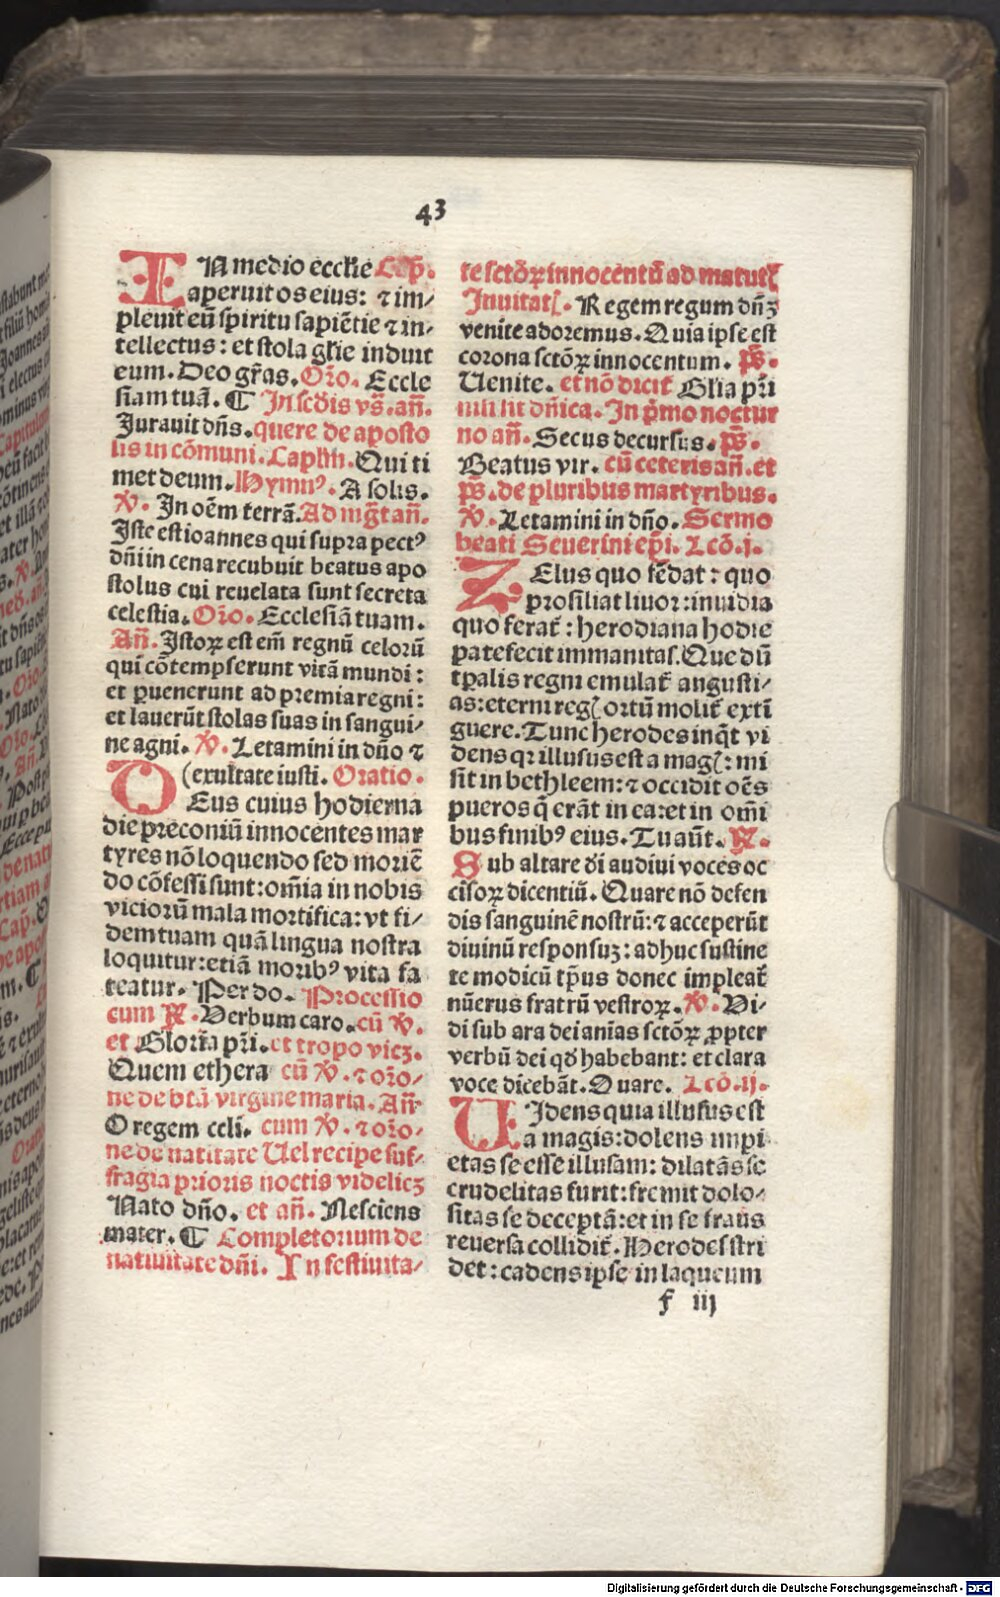 43
IN medio ecclie Cap̄.
aperuit os eius: ⁊ im/
pleuit eū spiritu sapiētie ⁊ in-
tellectus: et stola glīe induit
eum. Deo gr̄as. Or̄o. Eccle
siam tuā. ¶ In scd̄is vs̄. an̄.
Jurauit dn̄s. quere de aposto
lis in cōmuni. Caplm̄. Qui ti
met deum. Hymnꝰ. A solis.
V̄. In oēm terrā. Ad mḡt an̄.
Iste est ioannes qui supra pectꝰ
dn̄i in cena recubuit beatus apo
stolus cui reuelata sunt secreta
celestia. Or̄o. Ecclesiā tuam.
An̄. Istoꝝ est em̄ regnū celorū
qui cōtempserunt vitā mundi:
et puenerunt ad premia regni:
et lauerūt stolas suas in sangui/
ne agni. V̄. Letamini in dn̄o ⁊
(exultate iusti. Oratio.
DEus cuius hodierna
die preconiū innocentes mar
tyres nō loquendo sed moriē
do cōfessi sunt: om̄ia in nobis
viciorū mala mortifica: vt fi/
dem tuam quā lingua nostra
loquitur: etiā moribꝰ vita fa
teatur. Per do. Processio
cum R̄. Verbum caro. cū V̄.
et Gloria pr̄i. et tropo vicꝫ.
Quem ethera cū V̄. ⁊ or̄o/
ne de btā virgine maria. An̄
O regem celi. cum V̄. ⁊ or̄o/
ne de natitate Uel recipe suf/
fragia prioris noctis videlicꝫ
Nato dn̄o. et an̄. Nesciens
mater. ¶ Completorium de
natiuitate dn̄i. In festiuita/
te sctōꝝ innocentū ad matut̄
Inuitat̄. Regem regum dn̄ꝫ
venite adoremus. Quia ipse est
corona sctōꝝ innocentum. ps̄.
Uenite. et nō dicit̄ Glīa pr̄i
nisi sit dn̄ica. In p̄mo noctur
no an̄. Secus decursus. ps̄.
Beatus vir. cū ceteris an̄. et
ps̄. de pluribus martyribus.
V̄. Letamini in dn̄o. Sermo
beati Seuerini ep̄i. Lcō. j.
ZElus quo tēdat: quo
prosiliat liuor: inuidia
quo ferat̄: herodiana hodie
patefecit immanitas. Que dū
tp̄alis regni emulat̄ angusti/
as: eterni reḡ ortū molit̄ extī
guere. Tunc herodes inq̄t vi
dens qꝛ illusus est a maḡ: mi
sit in bethleem: ⁊ occidit oēs
pueros q̄ erāt in ea: et in om̄i
bus finibꝰ eius. Tu aūt. R̄.
Sub altare d̄i audiui voces oc
cisoꝝ dicentiū. Quare nō defen
dis sanguinē nostrū: ⁊ acceperūt
diuinū responsuꝫ: adhuc sustine
te modicū tp̄us donec impleat̄
nūerus fratrū vestroꝝ. V̄. Vi-
di sub ara dei anīas sctōꝝ ꝓpter
verbū dei qd̄ habebant: et clara
voce dicebāt. Quare. Lcō. ij.
UIdens quia illusus est
a magis: dolens impi
etas se esse illusam: dilatās se
crudelitas furit: fremit dolo/
sitas se deceptā: et in se fraus
reuersa collidit̄. Herodes stri
det: cadens ipse in laqueum
f iij
Digitalisierung gefördert durch die Deutsche Forschungsgemeinschaft - DFG